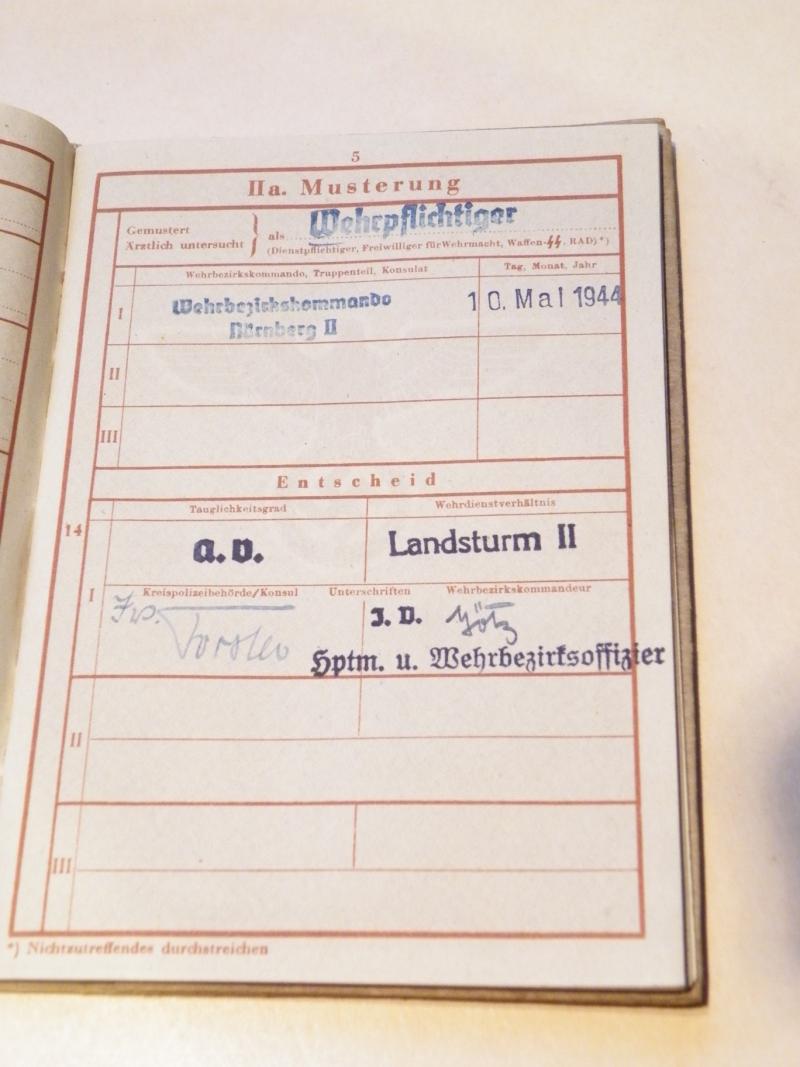 5
IIa. Musterung
Gemustert
Ärztlich untersucht
als Wehrpflichtiger
(Dienstpflichtiger, Freiwilliger für Wehrmacht, Waffen-ᛋᛋ, RAD)*)
Wehrbezirkskommando, Truppenteil, Konsulat
Tag, Monat, Jahr
I
Wehrbezirkskommando
Nürnberg II
10. Mai 1944
II
III
Entscheid
Tauglichkeitsgrad
Wehrdienstverhältnis
14
a.v.
Landsturm II
I
Kreispolizeibehörde/Konsul
Unterschriften
Wehrbezirkskommandeur
J. V. Götz
Hptm. u. Wehrbezirksoffizier
II
III
*) Nichtzutreffendes durchstreichen